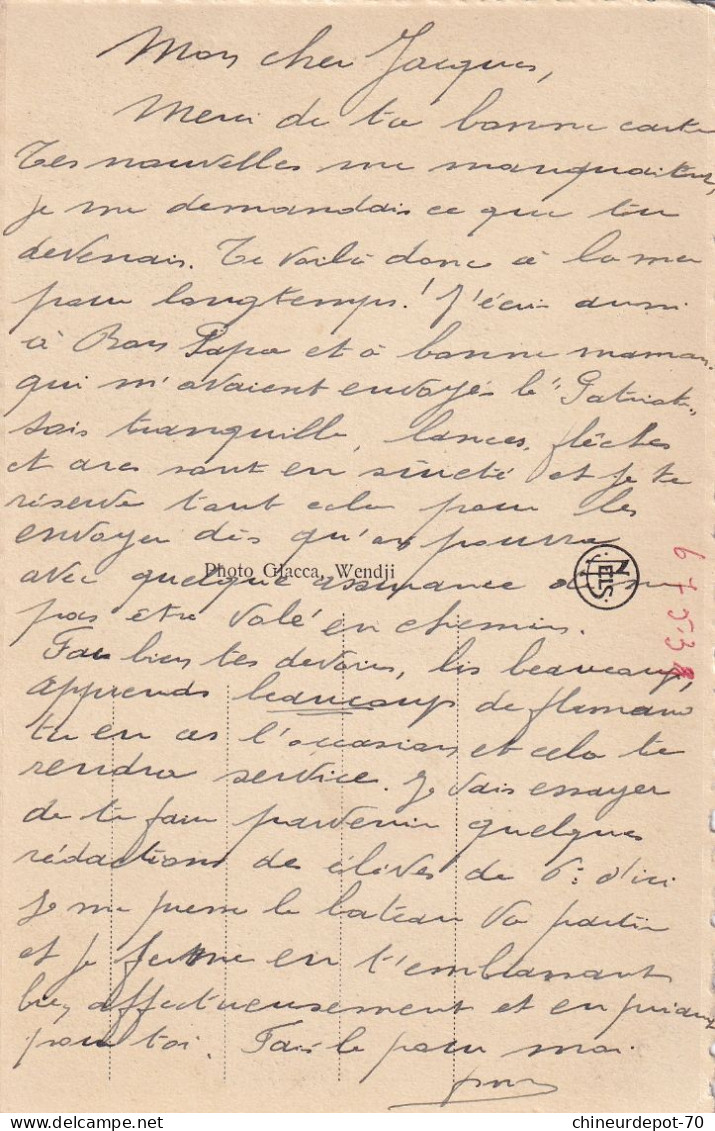 Mon cher Jacques,
Merci de ta bonne carte
Tes nouvelles me manquaient,
je me demandais ce que tu
devenais. Te voilà donc à la mer
pour longtemps! J'écris aussi
à Bon Papa et à bonne maman
qui m'avaient envoyés le "Patriote"
Sois tranquille, lances, flêches
et arcs sont en sûreté et je te
réserve tout cela pour les
envoyer dès qu'on pourra
avec quelque assurance de ne
Photo Glacca, Wendji
NELS
6 7 53
pas etre volé en chemin.
Fais bien tes devoirs, lis beaucoup,
apprends beaucoup de flamand
tu en as l'occasion et cela te
rendra service. Je vais essayer
de te faire parvenir quelques
rédactions des élèves de 6e d'ici
Je me presse le bateau va partir
et je ferme en t'embrassant
bien affectueusement et en priant
pour toi. Fais le pour moi.
chineurdepot-70